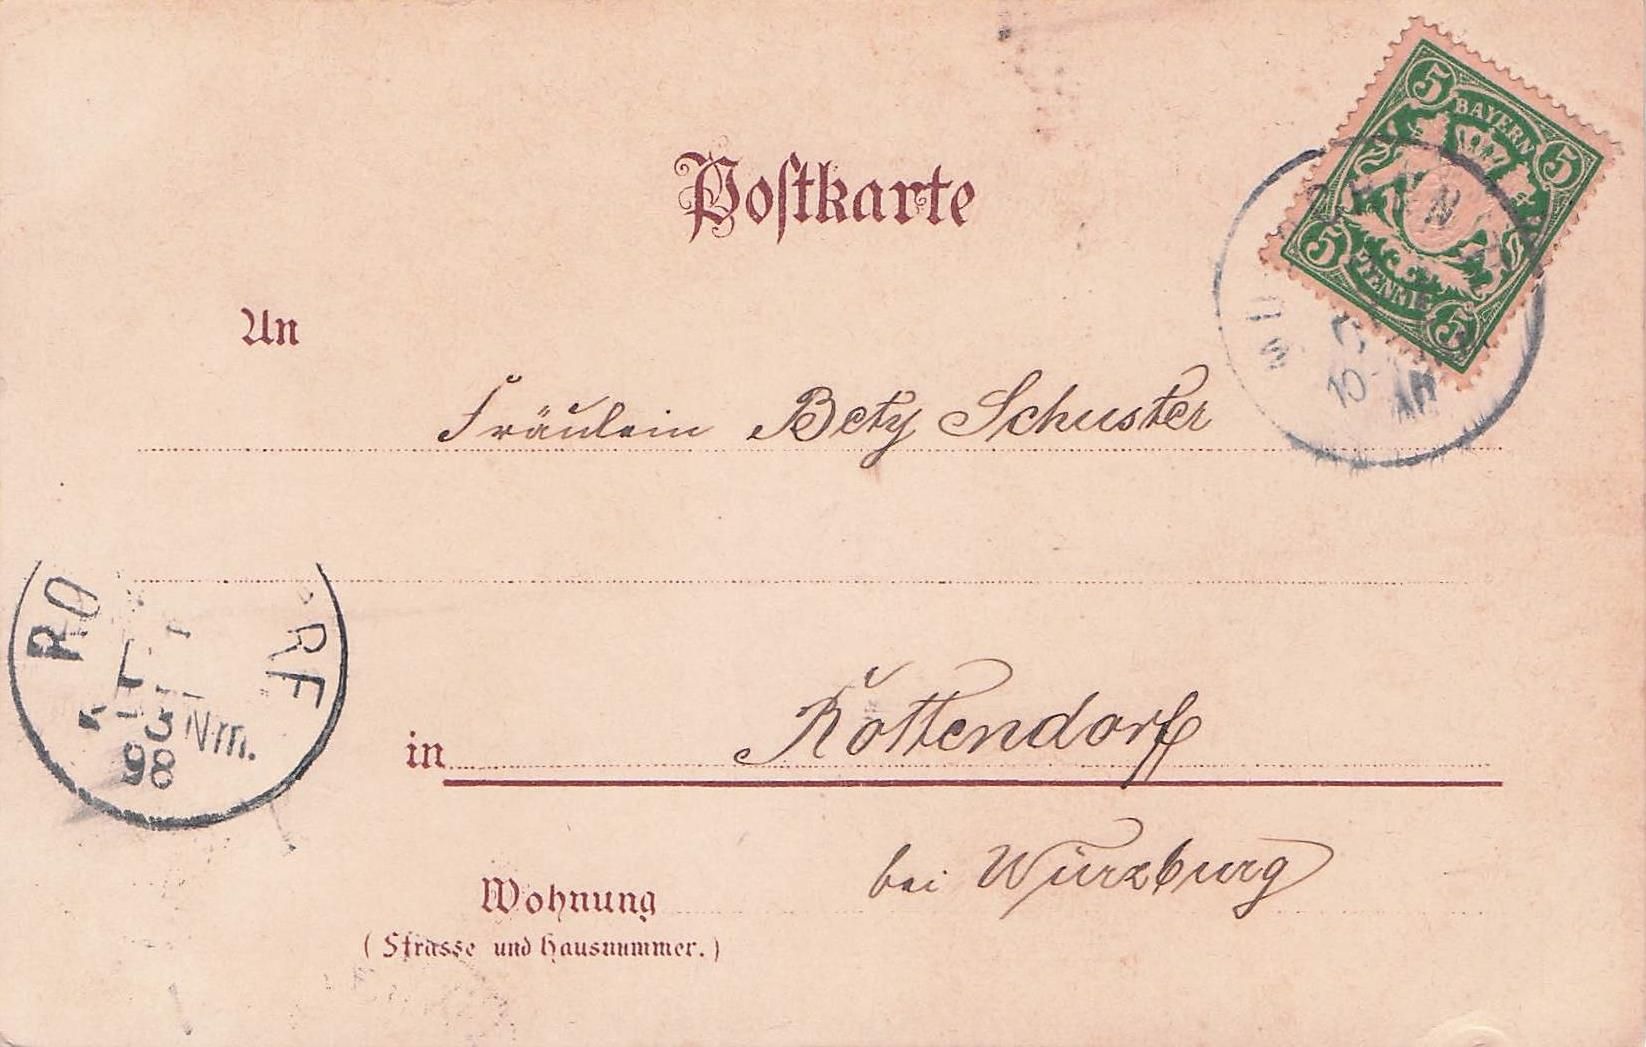 Postkarte
5 BAYERN 5
5 PFENNIG 5
An
Fräulein Bety Schuster
RO RF
3 Nm.
98
in Rottendorf
bei Würzburg
Wohnung
(Strasse und Hausnummer.)